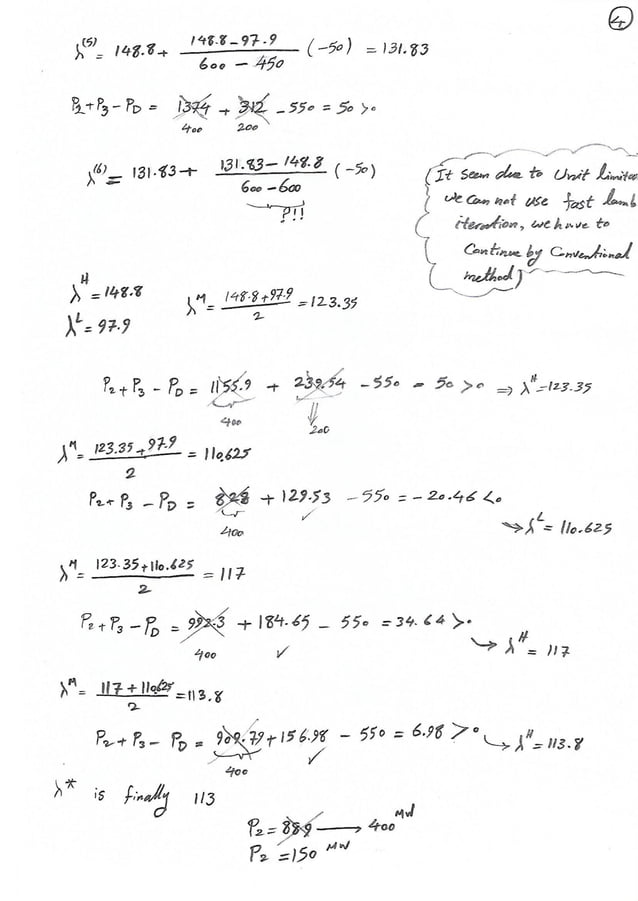 4
λ^(5) = 148.8 + (148.8 - 97.9)/(600 - 450) (-50) = 131.83
P2 + P3 - PD = 1374 + 312 - 550 = 50 > 0
400 200
λ^(6) = 131.83 + (131.83 - 148.8)/(600 - 600) (-50)
?!!
(It seem due to Unit limited
we can not use fast lamb
iteration, we have to
Continue by Conventional
method)
λ^H = 148.8
λ^L = 97.9
λ^M = (148.8 + 97.9)/2 = 123.35
P2 + P3 - PD = 1155.9 + 239.54 - 550 = 50 > 0 ⇒ λ^H = 123.35
400 200
λ^M = (123.35 + 97.9)/2 = 110.625
P2 + P3 - PD = 828 + 129.53 - 550 = -20.46 < 0
400 ✓
↪ λ^L = 110.625
λ^M = (123.35 + 110.625)/2 = 117
P2 + P3 - PD = 992.3 + 184.65 - 550 = 34.64 > 0
400 ✓
↪ λ^H = 117
λ^M = (117 + 110.625)/2 = 113.8
P2 + P3 - PD = 909.79 + 156.98 - 550 = 6.98 > 0 ↪ λ^H = 113.8
400 ✓
λ* is finally 113
P2 = 889 → 400 MW
P2 = 150 MW